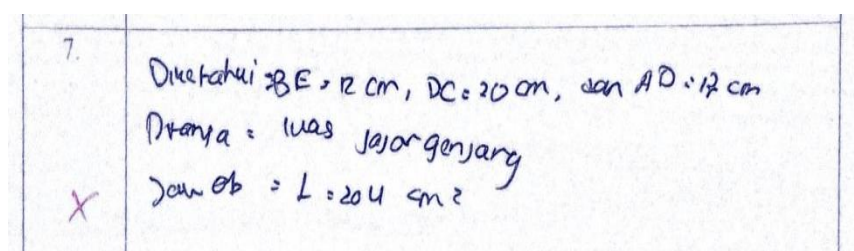 7.
Diketahui = BE = 12 cm, DC = 20 cm, dan AD = 17 cm
Ditanya = luas jajar genjang
Jawab = L = 204 cm²
X